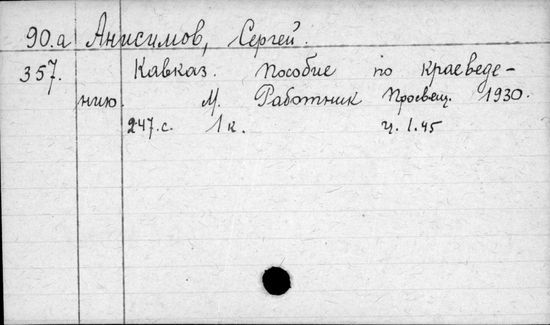 90.а Анисимов, Сергей.
357. Кавказ. Пособие по краеведе-
нию. М. Работник Просвещ. 1930.
247.с. 1 к. ц. 1.45